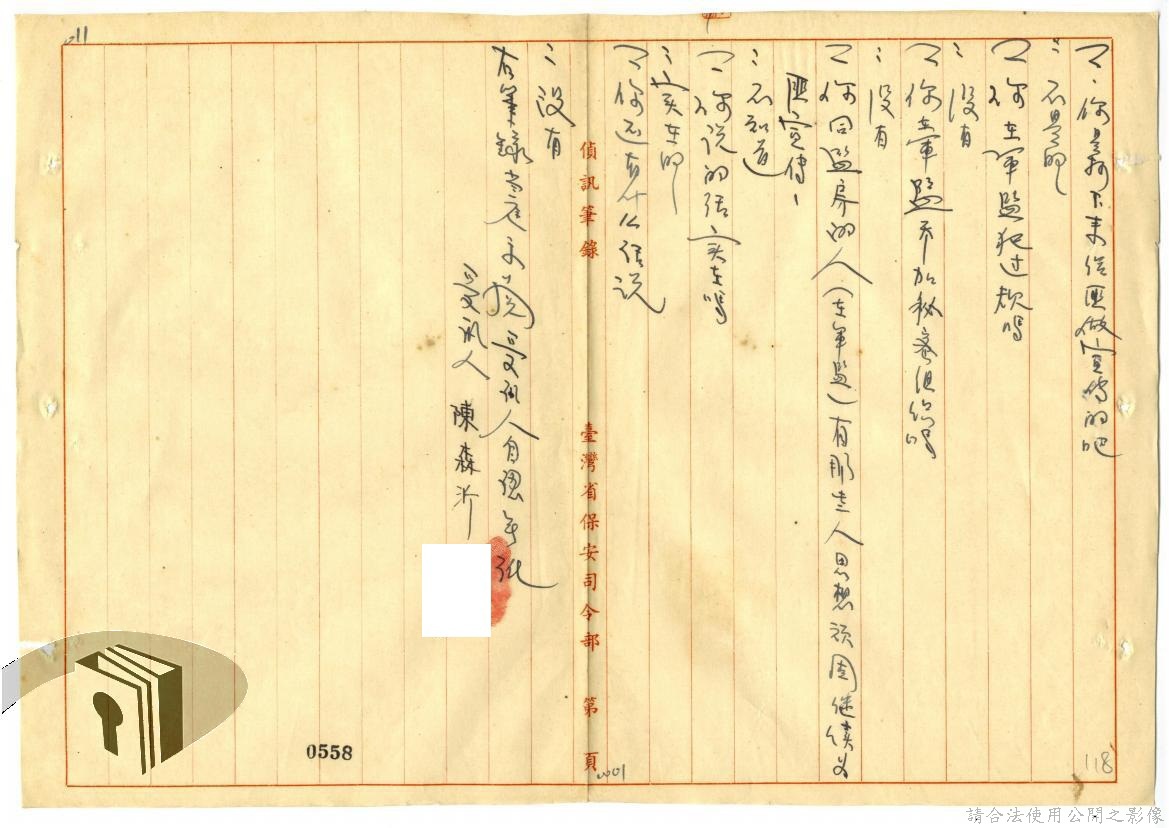 你是抄下来給匪做宣傳的吧
不是的
你在軍監犯过規嗎
没有
你在軍監參加秘密組织嗎
没有
你同監房的人(在軍監)有那些人思想頑固継續为
匪宣傳
不知道
你说的话实在嗎
实在的
你还有什么话说
没有
右筆錄當庭 受訊人自認無訛
受訊人 陳森
偵訊筆錄 臺灣省保安司令部 第 頁
0558
118
11
請合法使用公開之影像